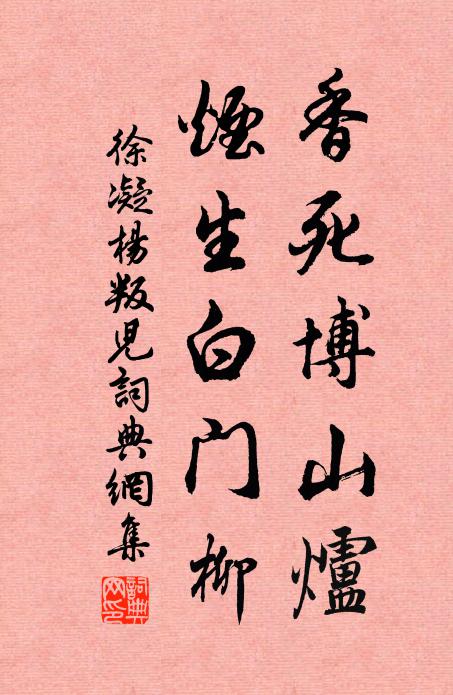 香死博山爐
煙生白门柳
徐凝楊叛児詞典網集
詞典网印